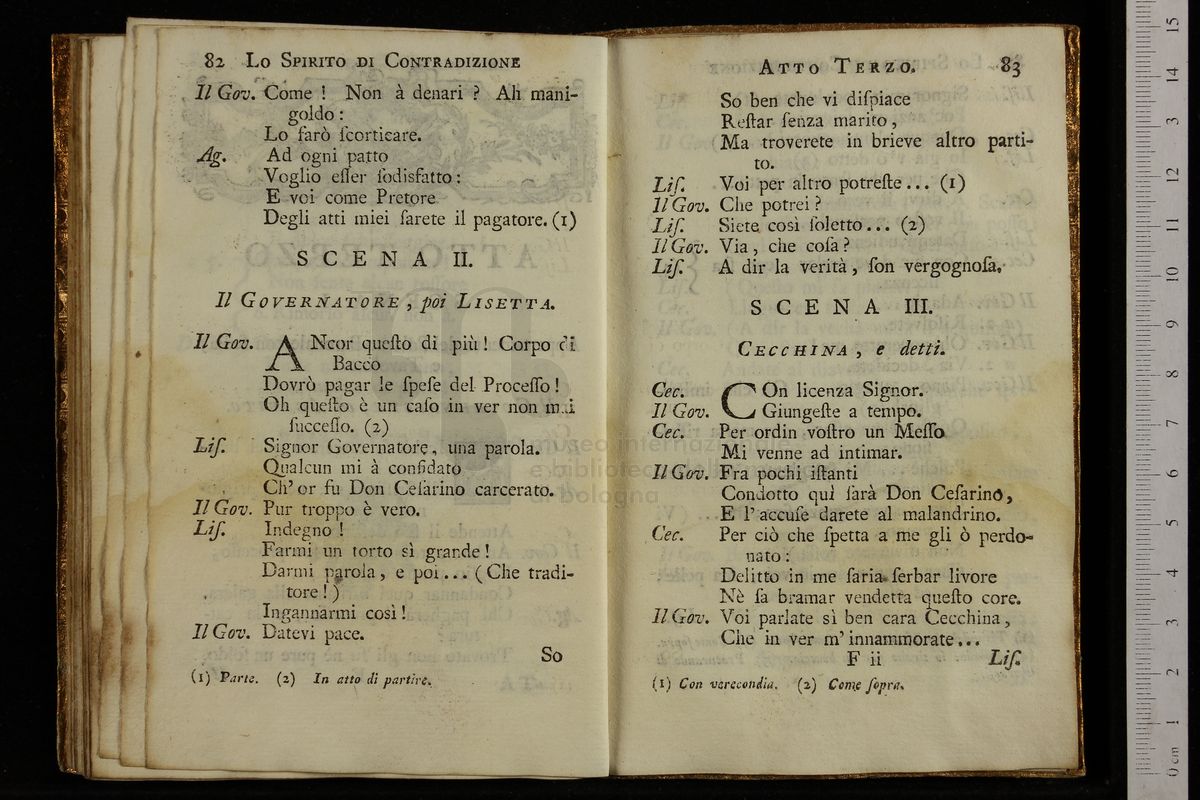 82 Lo Spirito di Contradizione
Il Gov. Come ! Non à denari ? Ah mani-
goldo :
Lo farò ſcorticare.
Ag. Ad ogni patto
Voglio eſſer ſodisfatto :
E voi come Pretore
Degli atti miei farete il pagatore. (1)
SCENA II.
Il Governatore , poi Lisetta.
Il Gov. ANcor queſto di più ! Corpo di
Bacco
Dovrò pagar le ſpeſe del Proceſſo !
Oh queſto è un caſo in ver non mai
ſucceſſo. (2)
Liſ. Signor Governatore, una parola.
Qualcun mi à confidato
Ch' or fu Don Ceſarino carcerato.
Il Gov. Pur troppo è vero.
Liſ. Indegno !
Farmi un torto sì grande !
Darmi parola, e poi... ( Che tradi-
tore ! )
Ingannarmi così !
Il Gov. Datevi pace.
So
(1) Parte. (2) In atto di partire.
Atto Terzo. 83
So ben che vi diſpiace
Reſtar ſenza marito ,
Ma troverete in brieve altro parti-
to.
Liſ. Voi per altro potreſte... (1)
Il Gov. Che potrei ?
Liſ. Siete così ſoletto... (2)
Il Gov. Via , che coſa ?
Liſ. A dir la verità , ſon vergognoſa.
SCENA III.
Cecchina , e detti.
Cec. COn licenza Signor.
Il Gov. Giungeſte a tempo.
Cec. Per ordin voſtro un Meſſo
Mi venne ad intimar.
Il Gov. Fra pochi iſtanti
Condotto quì ſarà Don Ceſarino,
E l' accuſe darete al malandrino.
Cec. Per ciò che ſpetta a me gli ò perdo-
nato :
Delitto in me ſaria ſerbar livore
Nè ſa bramar vendetta queſto core.
Il Gov. Voi parlate sì ben cara Cecchina ,
Che in ver m' innammorate...
F ii Liſ.
(1) Con verecondia. (2) Come ſopra.
museo internazionale
e biblioteca della musica
bologna
0 cm 1 2 3 4 5 6 7 8 9 10 11 12 13 14 15